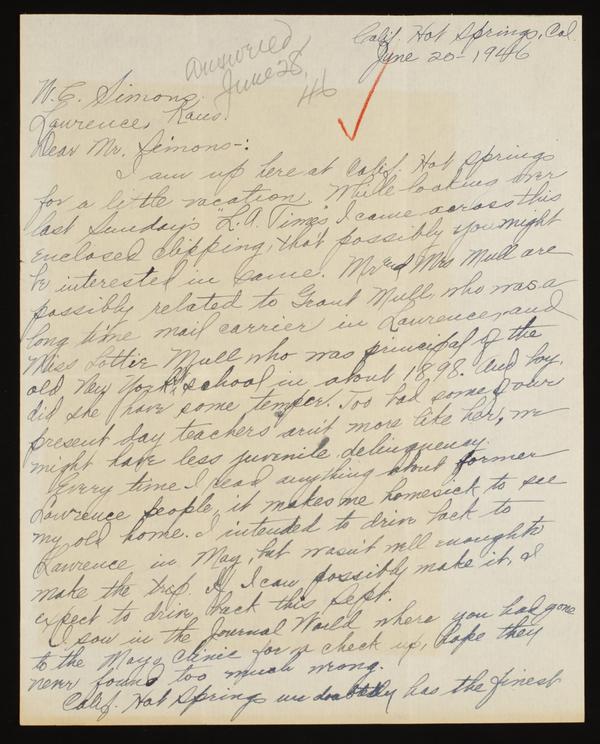 Calif. Hot Springs, Cal.
June 20-1946
answered
June 28,
46
W. C. Simons,
Lawrence, Kans.
Dear Mr. Simons-:
I am up here at Calif. Hot Springs
for a little vacation. While looking over
last Sunday's "L.A. Times" I came across this
enclosed clipping, that possibly you might
be interested in same. Mr and Mrs Mull are
possibly related to Grant Mull, who was a
long time mail carrier in Lawrence, and
Miss Lottie Mull who was principal of the
old New York school in about 1898. And boy,
did she have some temper. Too bad some of our
present day teachers arnt more like her, we
might have less juvenile delinquenay.
Every time I read anything about former
Lawrence people, it makes me homesick to see
my old home. I intended to drive back to
Lawrence in May, but wasn't well enough to
make the trip. If I can possibly make it, I
expect to drive back this Sept.
I saw in the Journal World where you had gone
to the Mayo Clinic for a check up, hope they
never found too much wrong.
Calif. Hot Springs undoubtedly has the finest